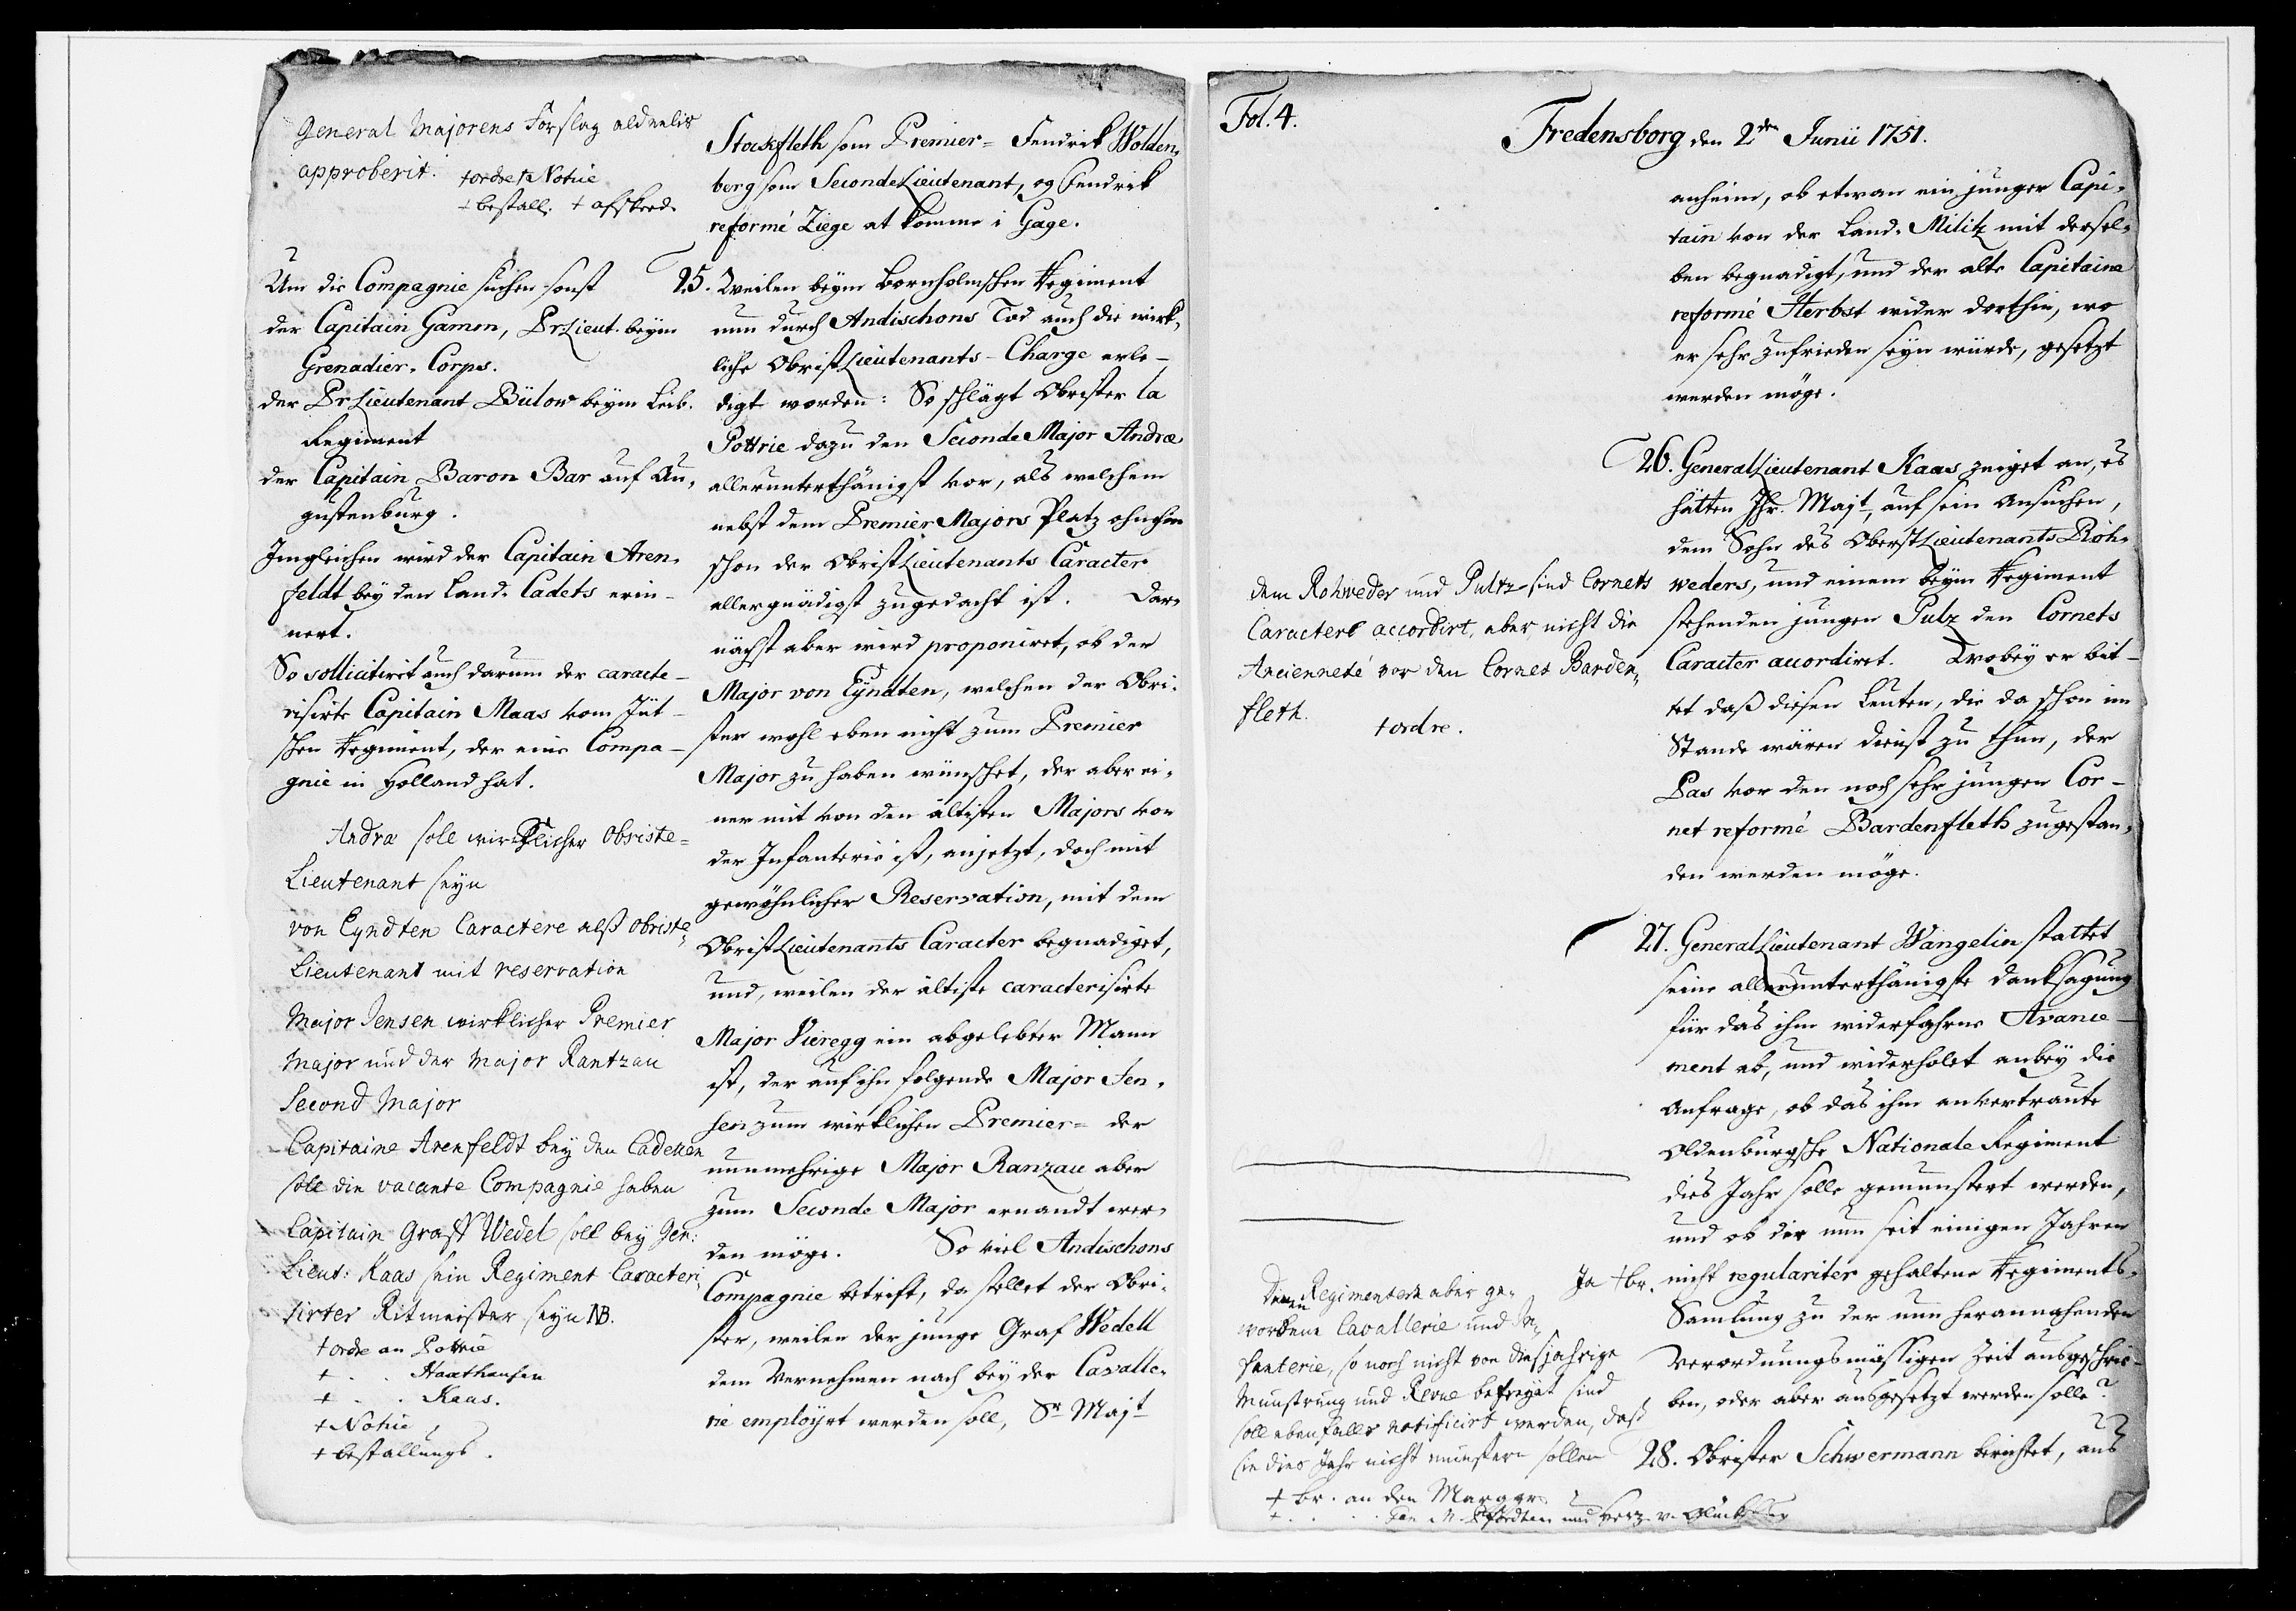 General Majorens Forslag aldeeles
approberit.
+ ordre + Notice
+ bestall. + afskeed.
Um die Compagnie suchen sonst
der Capitain Gamm, PrLieut. beym
Grenadier-Corps.
der PrLieutenant Bülow beym Leib-
Regiment
der Capitain Baron Bar auf Au-
gustenburg.
Imgleichen wird der Capitain Aren-
feldt bey den Land-Cadets erin-
nert.
So solliciteret auch darum der caracte-
risirte Capitain Maas vom Jüt-
schen Regiment, der eine Compa-
gnie in Holland hat.
Andræ soll wircklicher Obriste-
Lieutenant seyn
von Eyndten Caractere alß Obriste-
Lieutenant mit reservation
Major Jensen wirklicher Premier
Major und der Major Rantzau
Second Major
Capitaine Arenfeldt bey den Cadetten
soll die vacante Compagnie haben
Capitain Graff Wedel soll bey Gen:
Lieut: Kaas sein Regiment Caracteri-
sirter Ritmeister seyn NB.
+ ordre an Pottrie
+ . . Haxthausen
+ . . Kaas.
+ Notice
+ bestallungs.
Stockfleth som Premier- Fendrik Wolden-
berg som SecondeLieutenant, og Fendrik
reformé Ziege at komme i Gage.
25. Weilen beym Bornholmschen Regiment
nun durch Andischons Tod auch die wirk-
liche ObristLieutenants-Charge erle-
digt worden: So schlägt Obrister la
Pottrie dazu den Seconde Major Andræ
allerunterthänigst vor, als welchem
nebst dem Premier Majors Platz ohnehin
schon der ObristLieutenants Caracter
allergnädigst zugedacht ist. Dar-
nächst aber wird proponiret, ob der
Major von Eyndten, welchen der Obri-
ster wohl eben nicht zum Premier
Major zu haben wünschet, der aber ei-
ner mit von den ältisten Majors von
der Infanterie ist, anjetzt, doch mit
gewöhnlicher Reservation, mit dem
ObristLieutenants Caracter begnadiget,
und, weilen der ältiste caracterisirte
Major Vieregg ein abgelebter Mann
ist, der auf ihn folgende Major Jen-
sen zum wirklichen Premier- der
nunmehrige Major Ranzau aber
zum Seconde Major ernandt wer-
den möge. So viel Andischons
Compagnie betrift, da stellet der Obri-
ster, weilen der junge Graf Wedell
dem Vernehmen nach bey der Cavalle-
rie employrt werden soll, Sr Majt
Fol. 4.
Fredensborg den 2den Junii 1751.
anheim, ob etwan ein junger Capi-
tain von der Land-Militz mit dersel-
ben begnadigt, und der alte Capitaine
reformé Herbst wider dorthin, wo
er sehr zufrieden seyn würde, gesetzt
werden möge.
26. GeneralLieutenant Kaas zeiget an, es
hätten Ihr. Majt, auf sein Ansuchen,
dem Sohn des OberstLieutenants Roh-
weders, und einem beym Regiment
stehenden jungen Pulz den Cornets
Caracter accordiret. Wobey er bit-
tet daß diesen Leuten, die da schon im
Stande wären dienst zu thun, der
Pas vor den noch sehr jungen Cor-
net reformé Bardenfleth zugestan-
den werden möge.
dem Rohweder und Pultz sind Cornets
Caractere accordirt, aber nicht die
Ancienneté vor den Cornet Barden-
fleth.
+ ordre.
27. GeneralLieutenant Wangelin stattet
seine allerunterthänigste danksagung
für das ihm widerfahrne Avance-
ment ab, und widerholet anbey die
Anfrage, ob das ihm anvertraute
Oldenburgsche Nationale Regiment
dies Jahr solle gemunstert werden,
und ob die nun seit einigen Jahren
nicht regulariter gehaltene Regiments-
Samlung zu der nun herannahenden
Verordnungsmässigen Zeit ausgeschrie-
ben, oder aber ausgesetzt werden solle?
Ja + br.
Denen Regimentern aber ge-
worbene Cavallerie und In-
fanterie, so noch nicht von diesjährige
Munstrung und Revue befreyet sind
soll ebenfalls notificirt werden, daß
sie dies Jahr nicht munstern sollen
+ br. an den Marggr.
28. Obrister Schwermann berichtet, aus